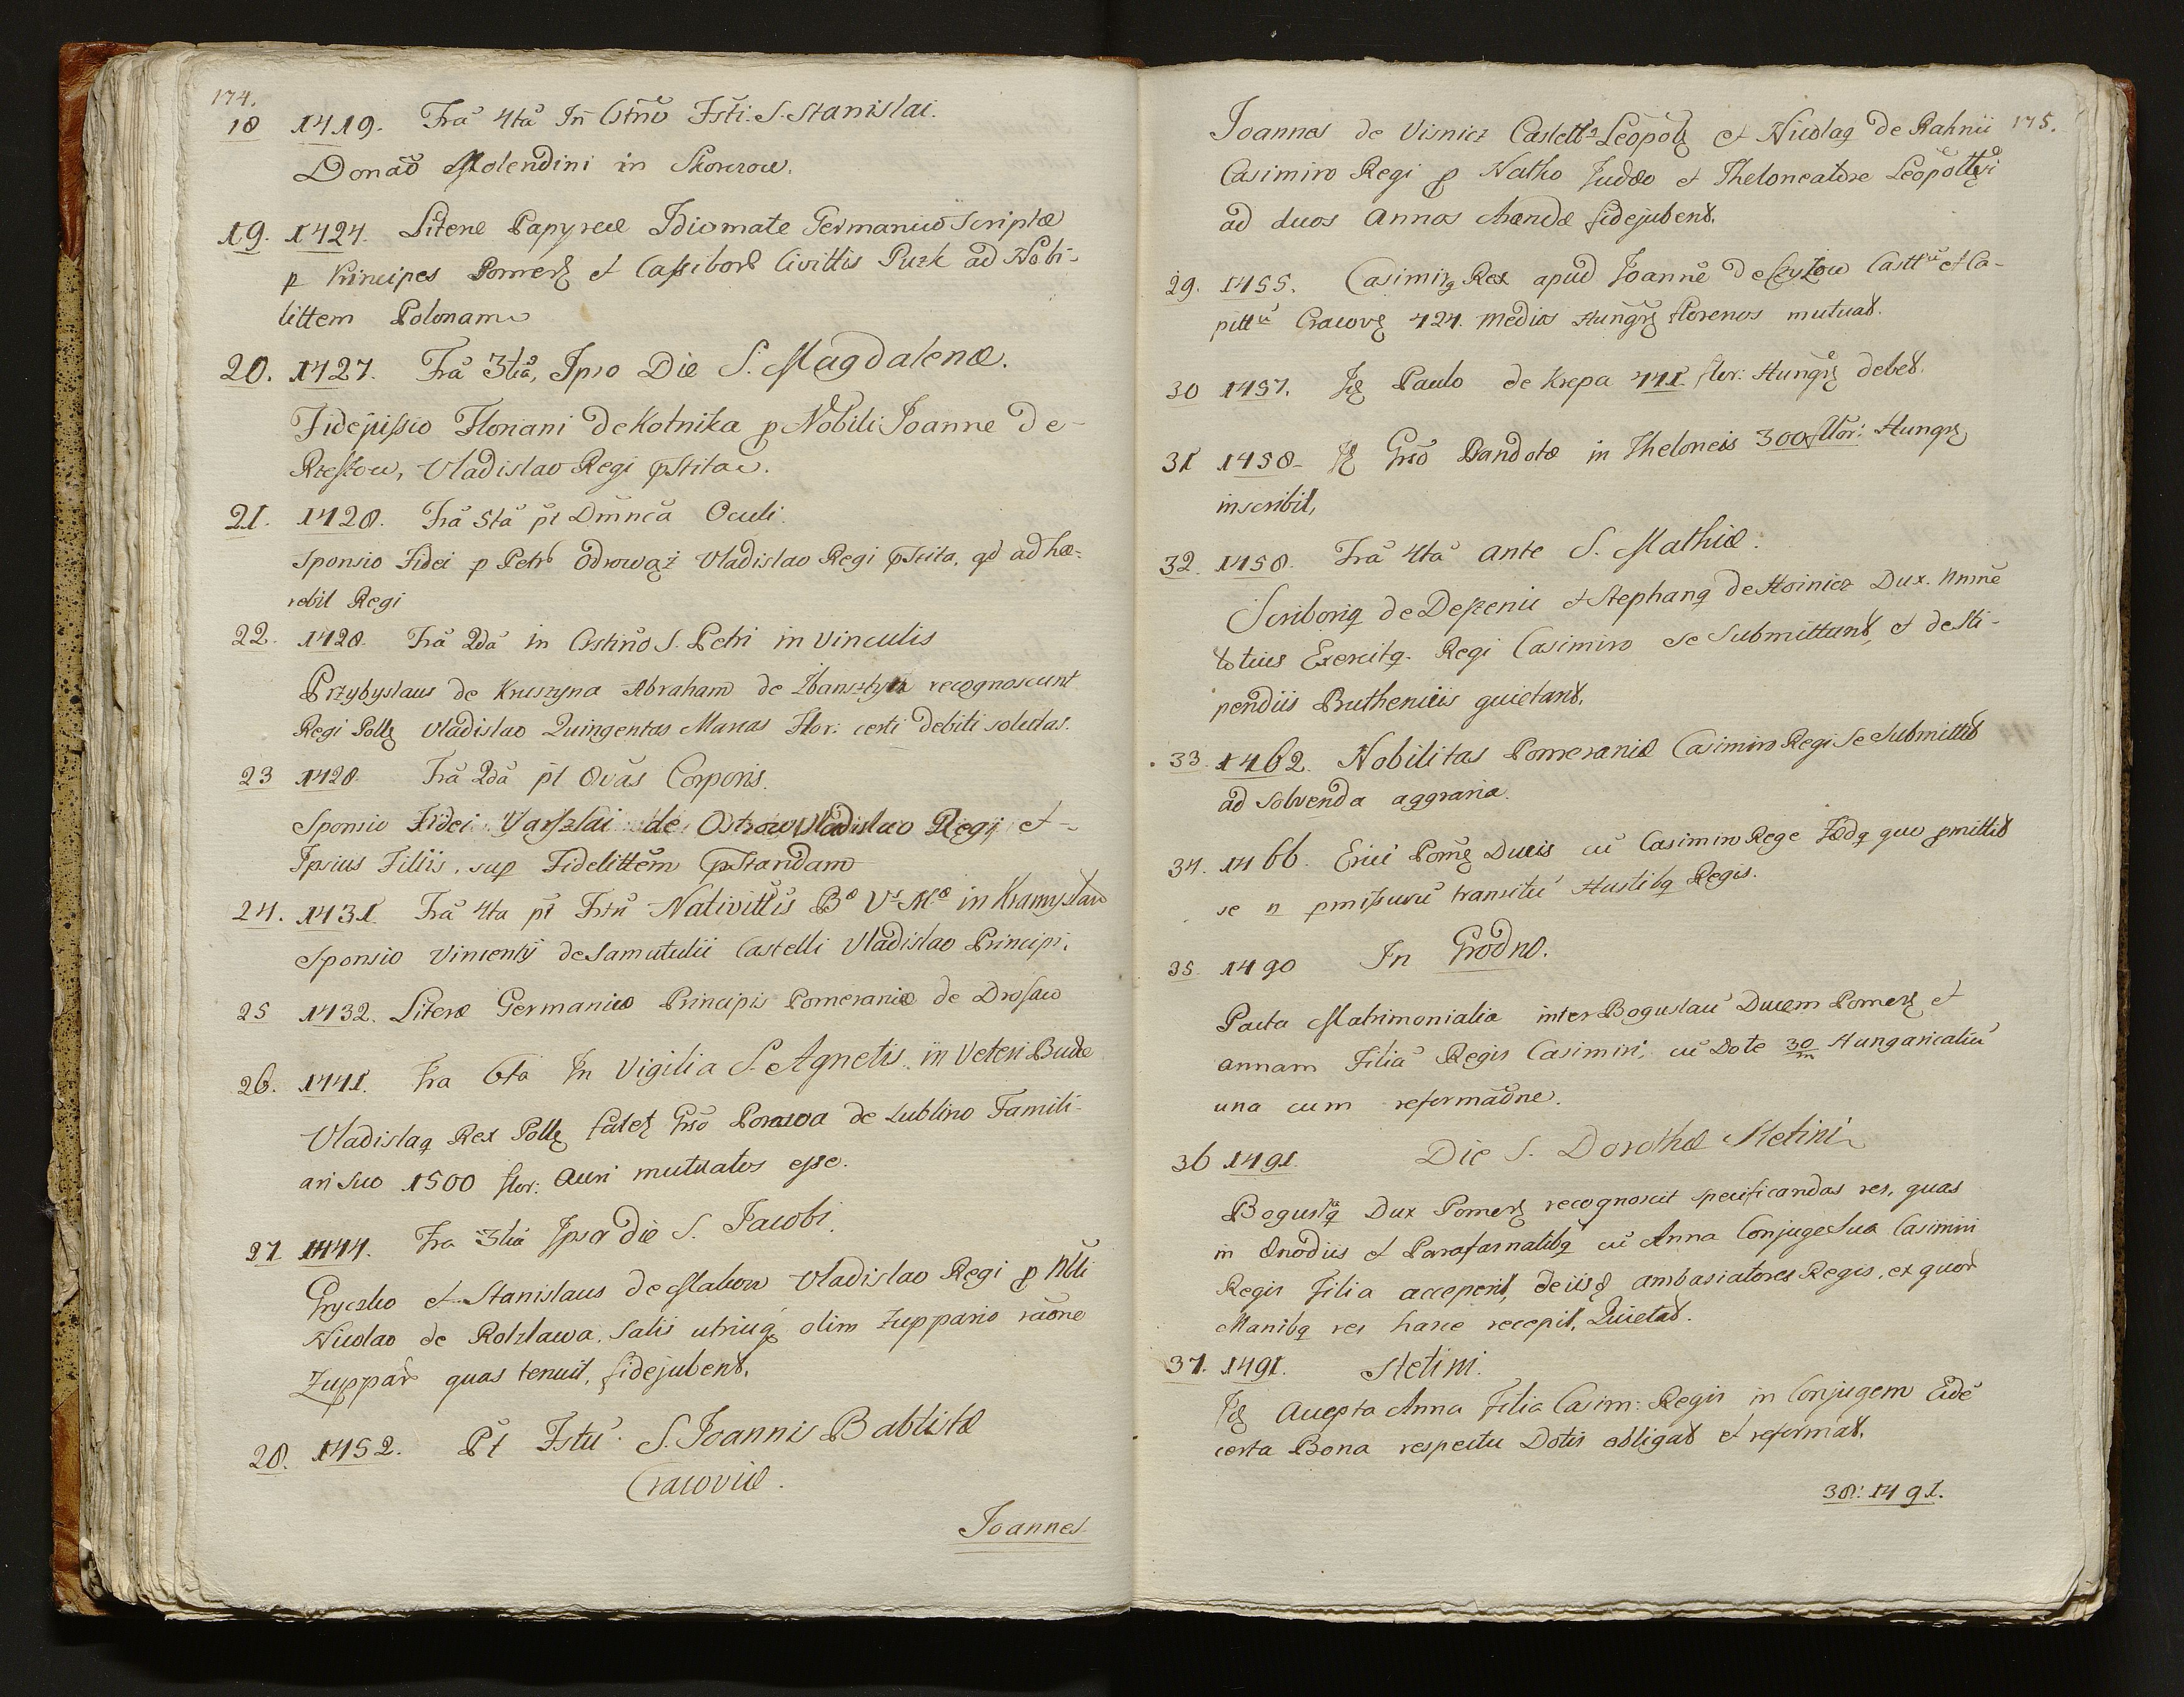 174.
18 1419. Fra 4ta In Cstno Fsti. S. Stanislai.
Donao Molendini in Skorzow.
19. 1424. Literæ Papyreæ Idiomate Germanico Scriptæ
p Principes Pomer et Cassibor Civittis Puzk ad Nobi-
littem Polonam
20. 1427. Fra 3tia, Ipso Die S. Magdalenæ.
Fidejussio Floriani de Kotnika p Nobili Joanne de-
Rzessow, Vladislao Regi pstita.
21. 1428. Fra 5ta pt Dmnca Oculi.
Sponsio Fidei p Petr Odrowąż Vladislao Regi pstita, qd ad hæ-
rebit Regi
22. 1428. Fra 2da in Cstino S. Petri in Vinculis
Przybyslaus de Kruszyna Abraham de recognoscunt
Regi Poll Vladislao Quingentas Marcas Flor: certi debiti solutas.
23 1428. Fra 2da pt Ovas Corporis.
Sponsio Fidei de Ostrow Vladislao Regi et-
Ipsius Filiis, sup Fidelittem pstandam
24. 1431 Fra 4ta pt Fstu Nativittis B V M in
Sponsio Vincentij de Samutulii Castelli Vladislao Principi.
25 1432. Literæ Germanicæ Principis Pomeraniæ de Drosaw
26. 1441. Fra 6ta In Vigilia S. Agnetis in Veteri Budæ
Vladislaq Rex Poll fatet Grso Porawa de Lublino Famili-
ari Suo 1500 flor: Auri mutuatos esse.
27 1444. Fra 3tia Ipsa die S. Jacobi.
Gryczko et Stanislaus de Makow Vladislao Regi p Nbli
Nicolao de Rolzlawa, Salis utriuq olim Zuppario raone
Zuppar quas tenuit, fidejubent.
28. 1452. Pt Fstu S. Joannis Babtistæ
Cracoviæ.
Joannes
175.
Joannes de Visnicz Castell Leopol et Nicolaq de Rahnii
Casimiro Regi p Natko Judæo et Theloneatore Leopolttsi
ad duos Annos Arendæ fidejubent.
29. 1455. Casimirq Rex apud Joanne de Czyżow Castt et Ca-
pitt Cracov 424. medios Hungr florenos mutuat.
30 1457. Id Paulo de Krepa 441 flor: Hungr debet.
31 1458- Id Grso Bandotæ in Theloneis 300 flor: Hungr
inscribit,
32. 1458. Fra 4ta ante S. Mathiæ.
Scriboriq de et Stephanq de Hoinicz Dux. Nmne
totius Exercitq Regi Casimiro se Submittunt, et de Sti-
pendiis Bruthenicis quietant.
33. 1462. Nobilitas Pomeraniæ Casimiro Regi se submittit
ad solvenda aggraria.
34. 1466. Erici Pom Ducis cu Casimiro Rege Fædq quo pmittit
se n pmissuru transitu Hostibq Regis.
35. 1490 In Grodno.
Pacta Matrimonialia inter Boguslau Ducem Pomer et
Annam Filia Regis Casimiri, cu Dote 30/m Hungaricaliu
una cum reformaone.
36 1491. Die S. Dorothæ Stetini
Boguslq Dux Pomer recognoscit specificandas res, quas
in Cnodiis et Parafarnalibq cu Anna Conjuge Sua Casimiri
Regis Filia acceperit, de iisq ambasiatores Regis, ex quor
Manibq res hasce recepit, Quietat.
37. 1491. Stetini.
Id Accepta Anna Filia Casim: Regis in Conjugem Eide
certa Bona respectu Dotis obligat et reformat.
38: 1491.